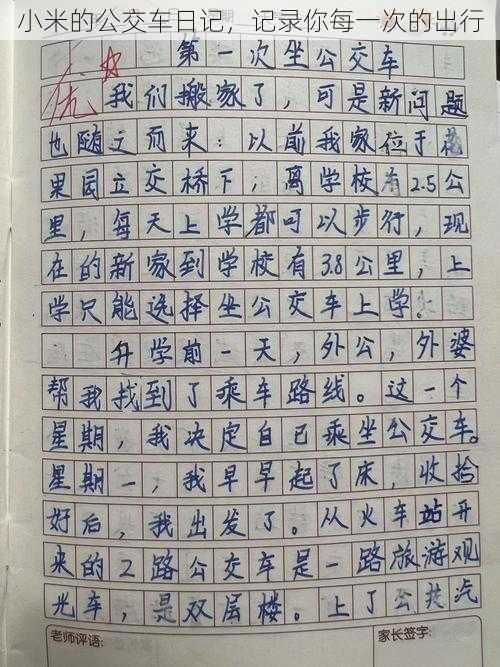 小米的公交车日记，记录你每一次的出行
优
第一次坐公交车
我们搬家了，可是新问题
也随之而来：以前我家位于花
果园立交桥下，离学校有2.5公
里，每天上学都可以步行，现
在的新家到学校有3.8公里，上
学只能选择坐公交车上学。
升学前一天，外公，外婆
帮我找到了乘车路线。这一个
星期，我决定自己乘坐公交车。
星期一，我早早起了床，收拾
好后，我出发了。从火车站开
来的2路公交车是一路旅游观
光车，是双层楼。上了公共汽
老师评语：
家长签字：